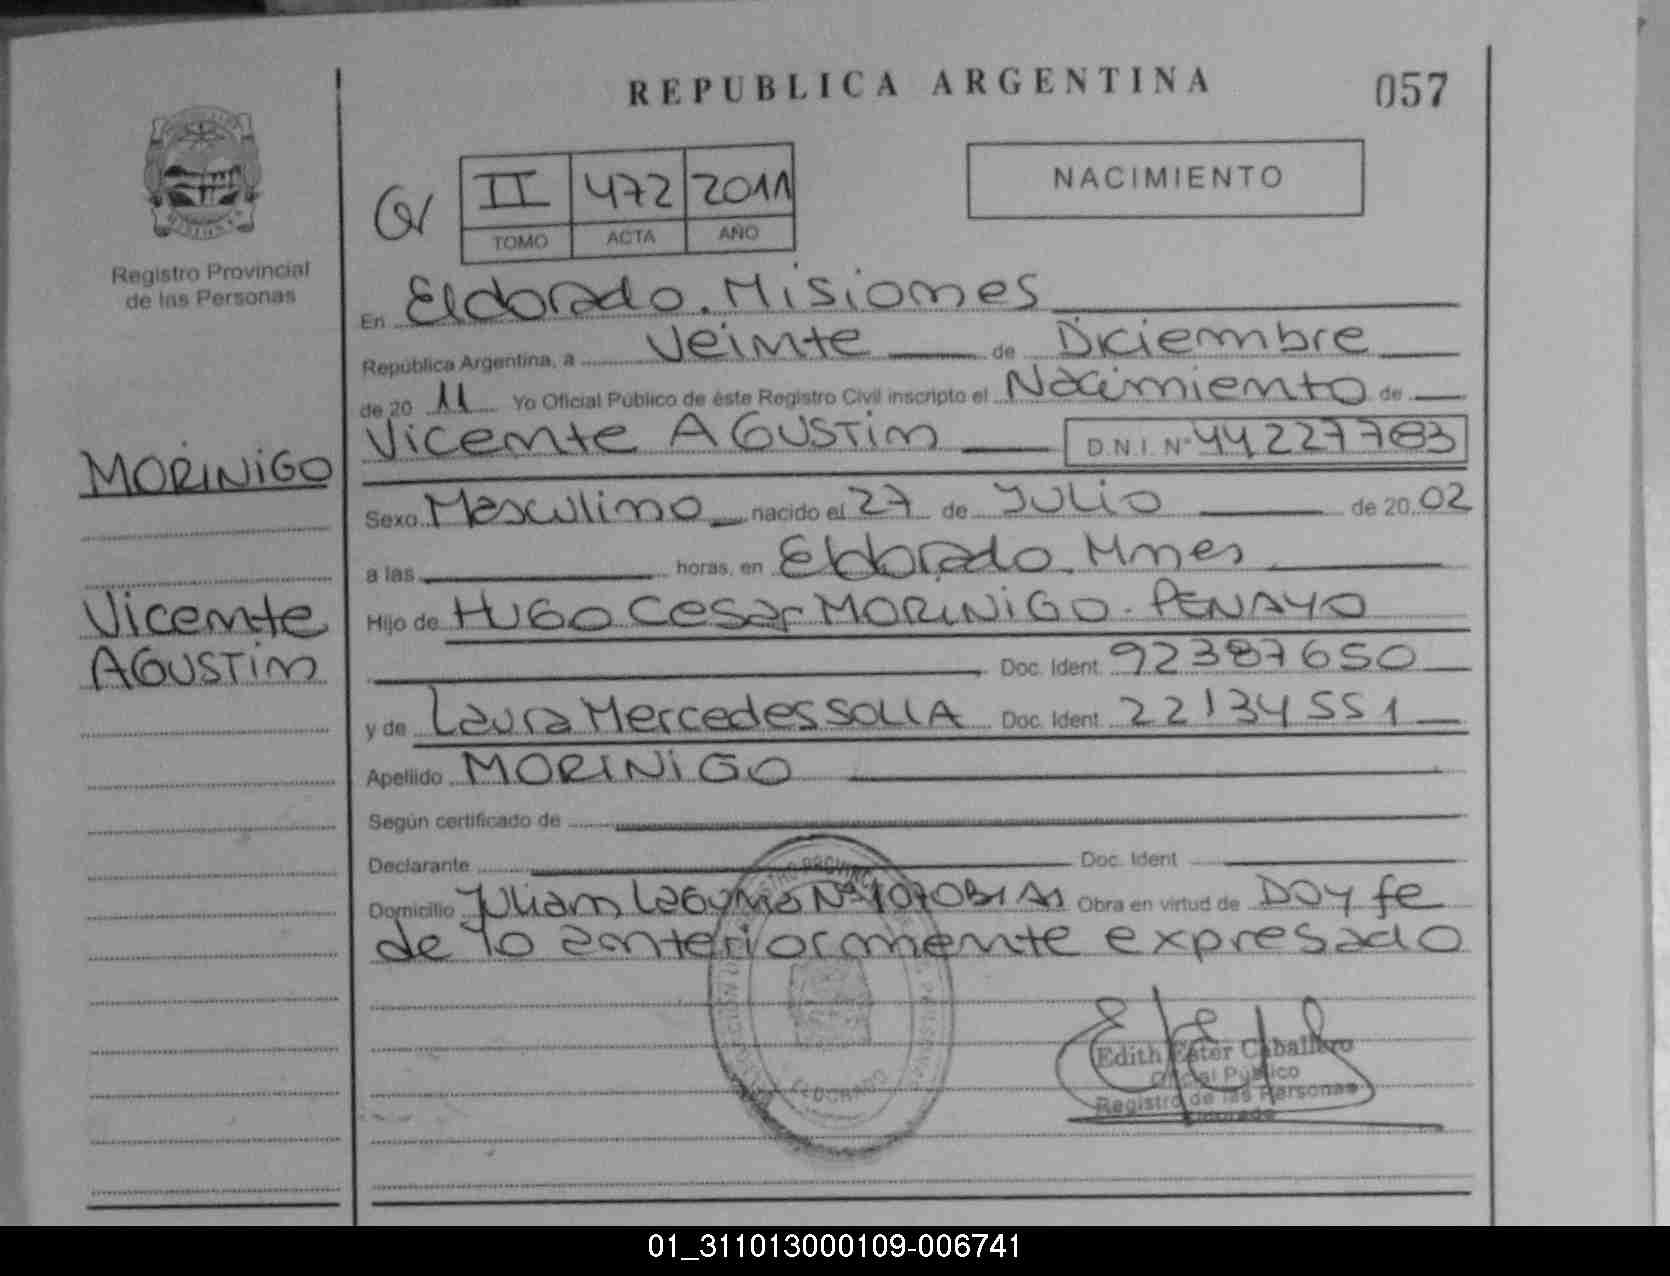 REPUBLICA ARGENTINA
057
II 472 2011
TOMO ACTA AÑO
NACIMIENTO
Registro Provincial
de las Personas
En Eldorado. Misiones
República Argentina, a Veinte de Diciembre
de 20 11 Yo Oficial Público de éste Registro Civil inscripto el Nacimiento de
Vicente AGUSTIN D.N.I. Nº 44227783
MORINIGO
Sexo Masculino nacido el 27 de JULIO de 20 02
a las horas, en Eldorado. Mnes
Vicente
AGUSTIN
Hijo de HUGO Cesar MORINIGO - PENAYO
Doc. Ident. 92387650
y de Laura Mercedes SOLLA Doc. Ident. 22134551
Apellido MORINIGO
Según certificado de
Declarante Doc. Ident
Domicilio Julian Obra en virtud de DOY fe
de lo anteriormente expresado
ELDORADO
Edith Ester Caballero
Oficial Público
Registro de las Personas
Eldorado
01_311013000109-006741